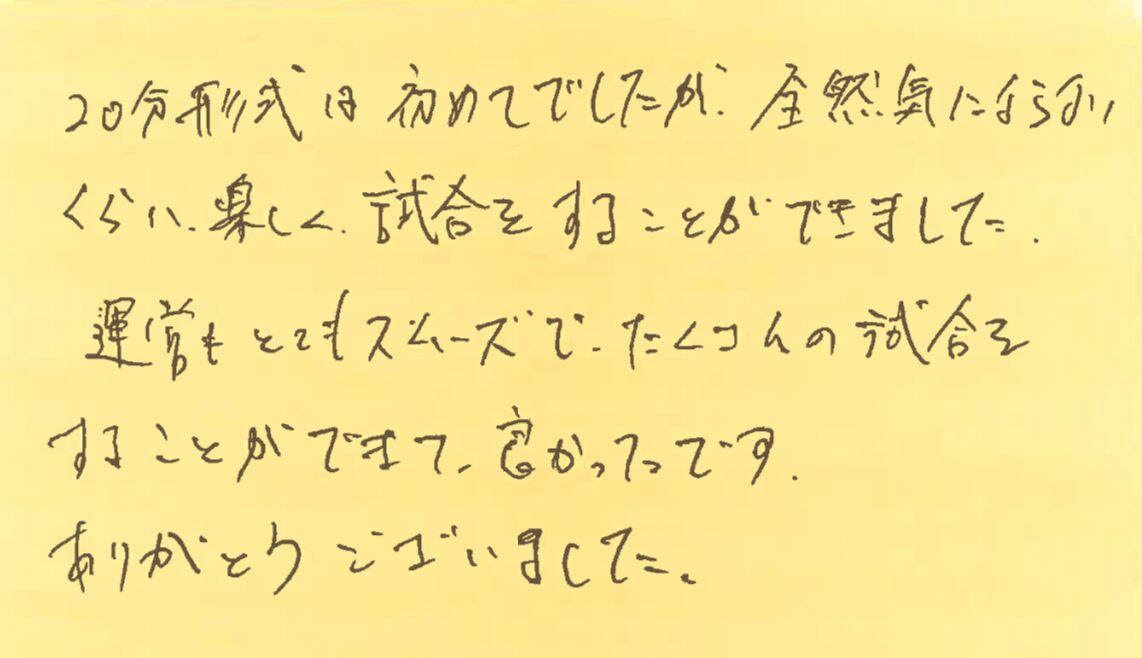 20分形式は初めてでしたが、全然気にならない
くらい、楽しく、試合をすることができました。
運営もとてもスムーズで、たくさんの試合を
することができて、良かったです。
ありがとうございました。